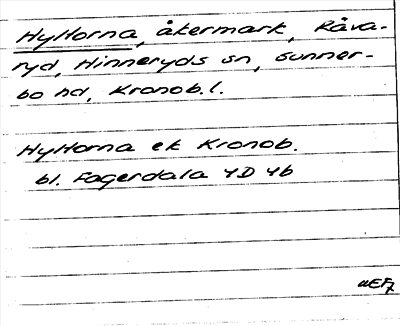 Hyltorna, åkermark, Råva-
ryd, Hinneryds sn, Sunner-
bo hd, Kronob.l.
Hyltorna ek Kronob.
bl. Fagerdala 4D 4b